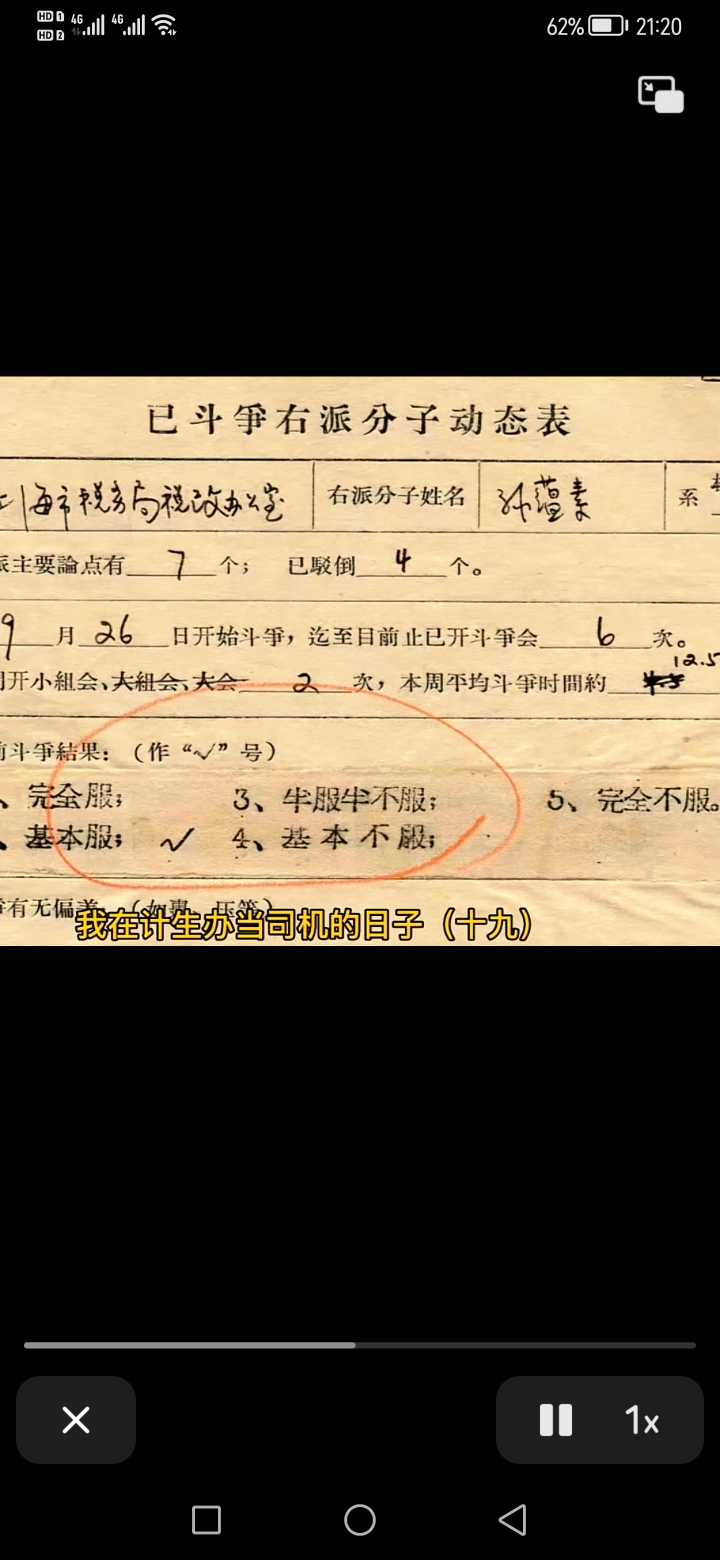 HD 1 4G 4G
HD 2
62% 21:20
已斗爭右派分子动态表
上海市税务局税政办公室 右派分子姓名 孙蕴素 系
派主要論点有 7 个； 已駁倒 4 个。
9 月 26 日开始斗爭，迄至目前止已开斗爭会 6 次。
12.5
开小組会、大組会、大会 2 次，本周平均斗爭时間約
前斗爭結果：（作“√”号）
、完全服； 3、半服半不服； 5、完全不服。
、基本服； √ 4、基本不服；
有无偏差
我在计生办当司机的日子（十九）
1x